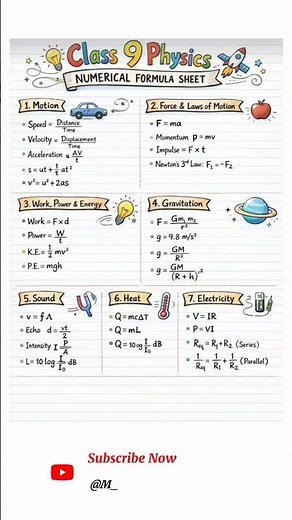 Class 9 Physics
NUMERICAL FORMULA SHEET
1. Motion
• Speed = Distance/Time
• Velocity = Displacement/Time
• Acceleration = ΔV/t
• s = ut + ½ at²
• v² = u² + 2as
2. Force & Laws of Motion
• F = ma
• Momentum p = mv
• Impulse = F × t
• Newton's 3rd Law: F₁ = −F₂
3. Work, Power & Energy
• Work = F × d
• Power = W/t
• K.E. = ½ mv²
• P.E. = mgh
4. Gravitation
• F = Gm₁ m₂/r²
• g = 9.8 m/s²
• g = GM/R²
• g = GM/(R + h)²
5. Sound
• v = f λ
• Echo d = vt/2
• Intensity I = P/A
• L = 10 log I/I₀ dB
6. Heat
• Q = mcΔT
• Q = mL
• Q = 10 og I/I₀ dB
7. Electricity
• V = IR
• P = VI
• Req = R₁ + R₂ (Series)
• 1/Req = 1/R₁ + 1/R₂ (Parallel)
Subscribe Now
@M_